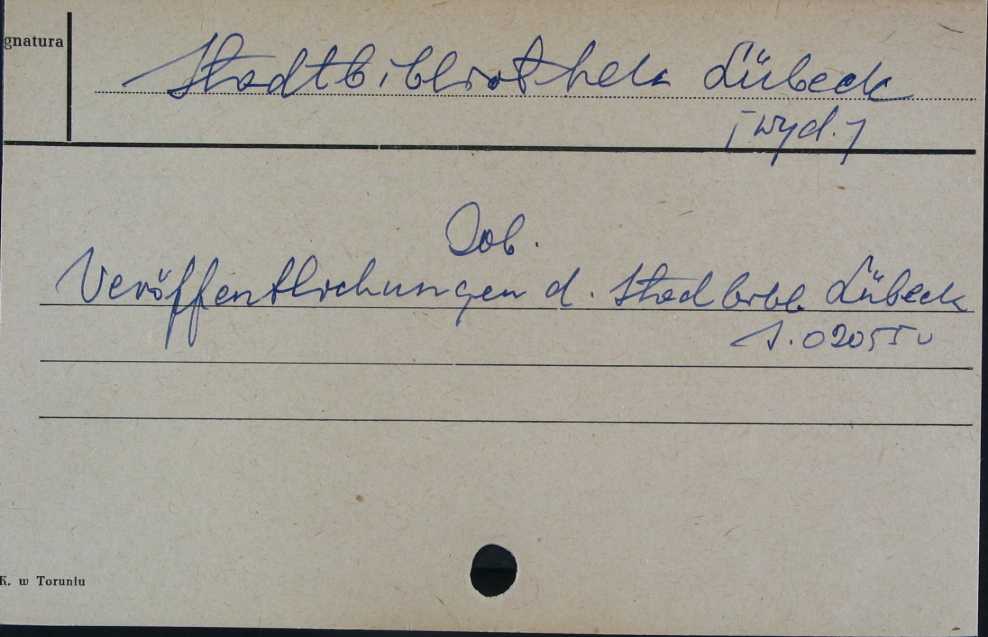 gnatura
Stadtbibliothek Lübeck
[wyd.]
Dob.
Veröffentlichungen d. Stadbibl. Lübeck
S. 02055
K. w Toruniu